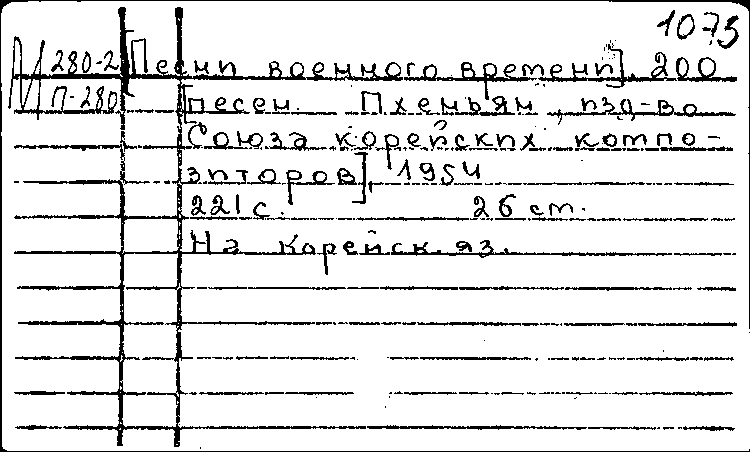 1073
М 280-2 [Песни военного времени]. 200
П-280 [песен. Пхеньян, изд-во
Союза корейских компо-
зиторов], 1954
221 с. 26 cm.
На корейск. яз.